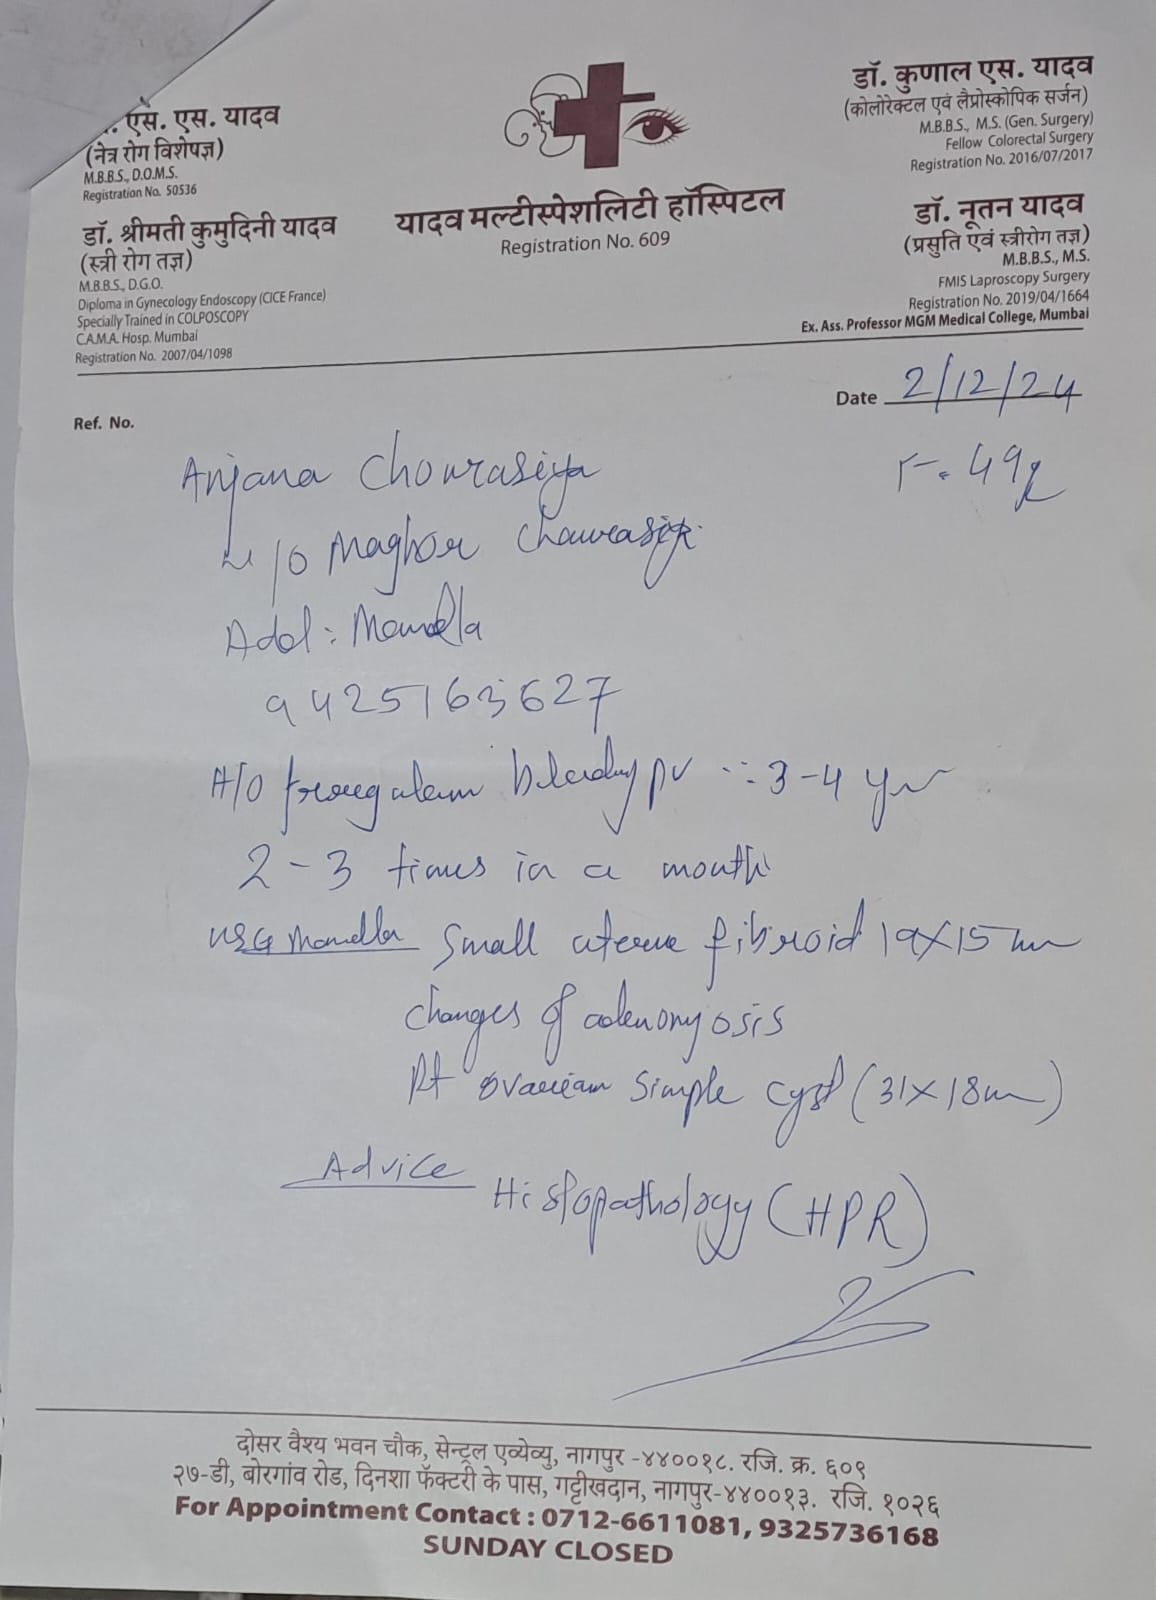 . एस. एस. यादव
(नेत्र रोग विशेषज्ञ)
M.B.B.S., D.O.M.S.
Registration No. 50536
डॉ. श्रीमती कुमुदिनी यादव
(स्त्री रोग तज्ञ)
M.B.B.S., D.G.O.
Diploma in Gynecology Endoscopy (CICE France)
Specially Trained in COLPOSCOPY
C.A.M.A. Hosp. Mumbai
Registration No. 2007/04/1098
यादव मल्टीस्पेशलिटी हॉस्पिटल
Registration No. 609
डॉ. कुणाल एस. यादव
(कोलोरेक्टल एवं लैप्रोस्कोपिक सर्जन)
M.B.B.S., M.S. (Gen. Surgery)
Fellow Colorectal Surgery
Registration No. 2016/07/2017
डॉ. नूतन यादव
(प्रसुति एवं स्त्रीरोग तज्ञ)
M.B.B.S., M.S.
FMIS Laproscopy Surgery
Registration No. 2019/04/1664
Ex. Ass. Professor MGM Medical College, Mumbai
Ref. No.
Date 2/12/24
Anjana Chourasiya F. 49y
/o Chaurasiya
Add: Mandla
9425163627
H/O Irregular bleeding pv 3-4 yr
2-3 times in a month
USG Mandla small uterine fibroid 19X15 mm
changes of adenomyosis
Rt ovarian simple cyst (31X18mm)
Advice Histopathology (HPR)
दोसर वैश्य भवन चौक, सेन्ट्रल एव्येव्यु, नागपुर -४४००१८. रजि. क्र. ६०९
२७-डी, बोरगांव रोड, दिनशा फॅक्टरी के पास, गट्टीखदान, नागपुर-४४००१३. रजि. १०२६
For Appointment Contact : 0712-6611081, 9325736168
SUNDAY CLOSED